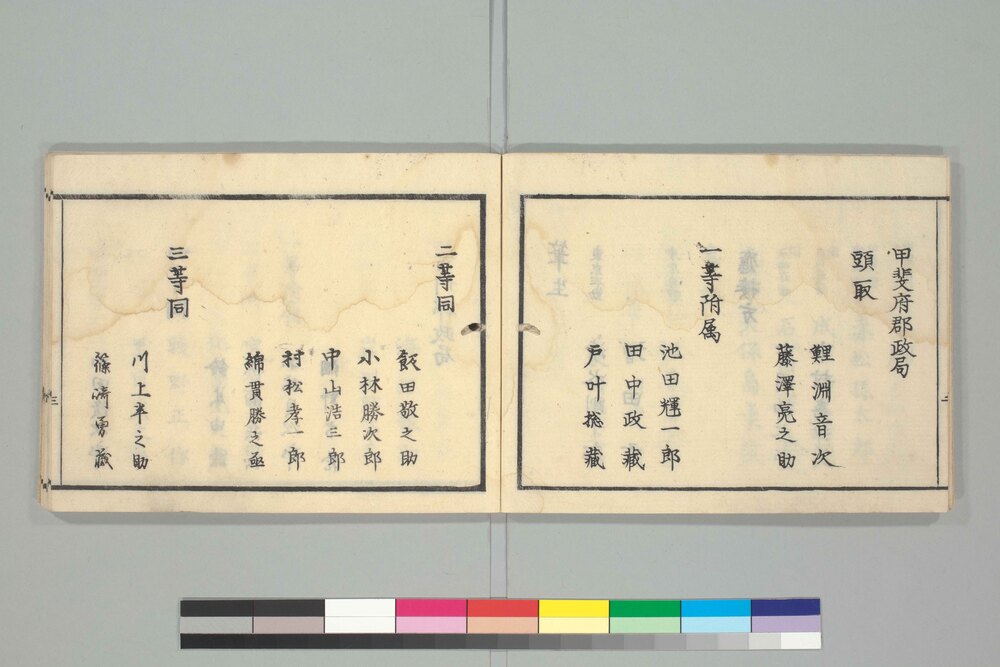 甲斐府郡政局
頭取
鯉淵音次
藤澤亮之助
一等附属
池田輝一郎
田中政蔵
戸叶捴蔵
二等同
飯田敬之助
小林勝次郎
中山浩三郎
村松孝一郎
綿貫勝之亟
三等同
川上平之助
篠㟢勇蔵
三